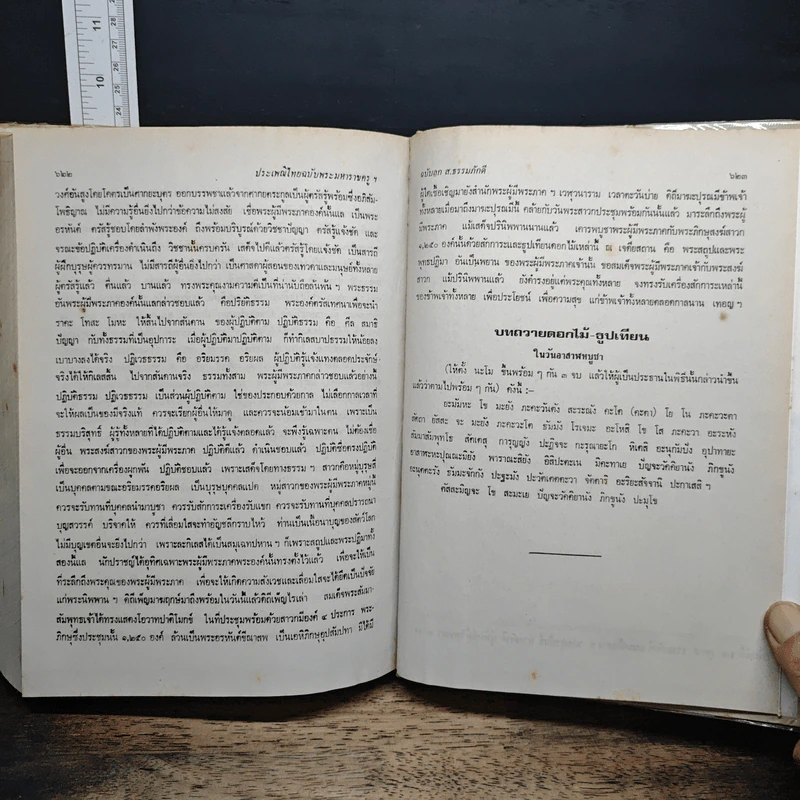 ๖๒๒ ประเพณีไทยฉบับพระมหาราชครู ฯ
วงศ์อันสูงโดยโคตรเป็นศากยะบุตร ออกบรรพชาแล้วจากศากยตระกูลเป็นผู้ตรัสรู้พร้อมซึ่งอภิสัม-
โพธิญาณ ไม่มีความรู้อื่นยิ่งไปกว่าข้อความไม่สงสัย เชื่อพระผู้มีพระภาคองค์นั้นแล เป็นพระ
อรหันต์ ตรัสรู้ชอบโดยลำพังพระองค์ ถึงพร้อมบริบูรณ์ด้วยวิชชาปัญญา ตรัสรู้แจ้งชัด และ
จรณะข้อปฏิบัติเครื่องดำเนินถึง วิชชานั้นครบครัน เสด็จไปดีแล้วตรัสรู้โดยแจ้งชัด เป็นสารถี
ผู้ฝึกบุรุษผู้ควรทรมาน ไม่มีสารถีผู้อื่นยิ่งไปกว่า เป็นศาสดาผู้สอนของเทวดาและมนุษย์ทั้งหลาย
ผู้ตรัสรู้แล้ว ตื่นแล้ว บานแล้ว ทรงพระคุณงามความดีเป็นที่น่านับถืออนันพน ฯ พระธรรม
อันพระผู้มีพระภาคองค์นั้นกล่าวชอบแล้ว คือปริยัติธรรม พระองค์ตรัสเทศนาเพื่อจะนำ
ราคะ โทสะ โมหะ ให้สิ้นไปจากสันดาน ของผู้ปฏิบัติตาม ปฏิบัติธรรม คือ ศีล สมาธิ
ปัญญา กับทั้งธรรมที่เป็นอุปการะ เมื่อผู้ปฏิบัติมาปฏิบัติตาม ก็ทำกิเลสบาปธรรมให้น้อยลง
เบาบางลงได้จริง ปฏิเวธธรรม คือ อริยมรรค อริยผล ผู้ปฏิบัติรู้แจ้งแทงตลอดประจักษ์-
จริงได้ให้กิเลสสิ้น ไปจากสันดานจริง ธรรมทั้งสาม พระผู้มีพระภาคกล่าวชอบแล้วอย่างนี้
ปฏิบัติธรรม ปฏิเวธธรรม เป็นส่วนผู้ปฏิบัติตาม ใช่ของประกอบด้วยกาล ไม่เลือกกาลเวลาที่
จะให้ผลเป็นของมีจริงแท้ ควรจะเรียกผู้อื่นให้มาดู และควรจะน้อมเข้ามาในตน เพราะเป็น
ธรรมบริสุทธิ์ ผู้รู้ทั้งหลายที่ได้ปฏิบัติตามและได้รู้แจ้งตลอดแล้ว จะพึงรู้เฉพาะตน ไม่ต้องเชื่อ
ผู้อื่น พระสงฆ์สาวกของพระผู้มีพระภาค ปฏิบัติดีแล้ว ดำเนินชอบแล้ว ปฏิบัติซื่อตรงปฏิบัติ
เพื่อจะออกจากเครื่องผูกพัน ปฏิบัติชอบแล้ว เพราะเสด็จโดยทางธรรม ฯ สาวกคือหมู่บุรุษที่
เป็นบุคคลตามขณะอริยมรรคอริยผล เป็นบุรุษบุคคลแปด หมู่สาวกของพระผู้มีพระภาคหมู่นี้
ควรจะรับทานที่บุคคลนำมาบูชา ควรรับสักการะเครื่องรับแขก ควรจะรับทานที่บุคคลปรารถนา
บุญสวรรค์ บริจาคให้ ควรที่เลื่อมใสจะทำอัญชลีกราบไหว้ ท่านเป็นเนื้อนาบุญของสัตว์โลก
ไม่มีบุญเขตอื่นจะยิ่งไปกว่า เพราะละกิเลสได้เป็นสมุเฉทปหาน ฯ ก็เพราะสถูปและพระปฏิมาทั้ง
สองนี้แล นักปราชญ์ได้อุทิศเฉพาะพระผู้มีพระภาคพระองค์นั้นทรงตั้งไว้แล้ว เพื่อจะให้เป็น
ที่ระลึกถึงพระคุณของพระผู้มีพระภาค เพื่อจะให้เกิดความสังเวชและเลื่อมใสจะได้ยึดเป็นปัจจัย
แก่พระนิพพาน ฯ ดิถีเพ็ญมาฆฤกษ์มาถึงพร้อมในวันนี้แล้วดิถีเพ็ญไรเล่า สมเด็จพระสัมมา-
สัมพุทธเจ้าได้ทรงแสดงโอวาทปาติโมกข์ ในที่ประชุมพร้อมด้วยสาวกมีองค์ ๔ ประการ พระ-
ภิกษุซึ่งประชุมนั้น ๑,๒๕๐ องค์ ล้วนเป็นพระอรหันต์ขีณาสพ เป็นเอหิภิกษุอุปสัมปทา มิได้มี
ฉบับลุก ส.ธรรมภักดี ๖๒๓
ผู้ใดเชื้อเชิญมายังสำนักพระผู้มีพระภาค ฯ เวฬุวนาราม เวลาตะวันบ่าย ดิถีมาฆะปุรณมีข้าพเจ้า
ทั้งหลายเมื่อมาถึงมาฆะปุรณมีนี้ คล้ายกับวันพระสาวกประชุมพร้อมกันนั้นแล้ว มาระลึกถึงพระผู้
มีพระภาค แม้เสด็จปรินิพพานนานแล้ว เคารพบูชาพระผู้มีพระภาคกับพระภิกษุสงฆ์สาวก
๑,๒๕๐ องค์นั้นด้วยสักการะและธูปเทียนดอกไม้เหล่านี้ ณ เจดียสถาน คือ พระสถูปและพระ
พุทธปฏิมา อันเป็นพยาน ของพระผู้มีพระภาคเจ้านั้น ขอสมเด็จพระผู้มีพระภาคเจ้ากับพระสงฆ์
สาวก แม้ปรินิพพานแล้ว ยังดำรงอยู่แต่พระคุณทั้งหลาย จงทรงรับเครื่องสักการะเหล่านี้
ของข้าพเจ้าทั้งหลาย เพื่อประโยชน์ เพื่อความสุข แก่ข้าพเจ้าทั้งหลายตลอดกาลนาน เทอญ ฯ
บทถวายดอกไม้-ธูปเทียน
ในวันอาสาฬหบูชา
(ให้ตั้ง นะโม ขึ้นพร้อม ๆ กัน ๓ จบ แล้วให้ผู้เป็นประธานในพิธีนั้นกล่าวนำขึ้น
แล้วว่าตามไปพร้อม ๆ กัน) ดังนี้ :–
ยะมัมหะ โข มะยัง ภะคะวันตัง สะระณัง คะโต (คะตา) โย โน ภะคะวะตา
สัตถา ยัสสะ จะ มะยัง ภะคะวะโต ธัมมัง โรเจมะ อะโหสิ โข โส ภะคะวา อะระหัง
สัมมาสัมพุทโธ สัตเตสุ การุญญัง ปะฏิจจะ กะรุณายะโก หิเตสี อะนุกัมปัง อุปาทายะ
อาสาฬะหะปุณณะมียัง พาราณะสียัง อิสิปะตะเน มิคะทาเย ปัญจะวัคคิยานัง ภิกขูนัง
อะนุตตะรัง ธัมมะจักกัง ปะฐะมัง ปะวัตเตตะวา จัตตาริ อะริยะสัจจานิ ปะกาเสสิ ฯ
ตัสสะมิญจะ โข สะมะเย ปัญจะวัคคิยานัง ภิกขูนัง ปะมุโข